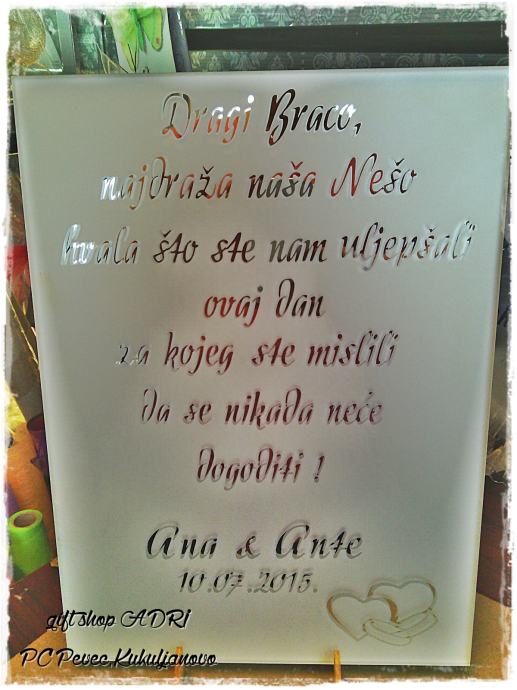 Dragi Braco,
najdraža naša Nešo
hvala što ste nam uljepšali
ovaj dan
za kojeg ste mislili
da se nikada neće
dogoditi !
Ana & Ante
10.07.2015.
gift shop ADRI
PC Pevec,Kukuljanovo